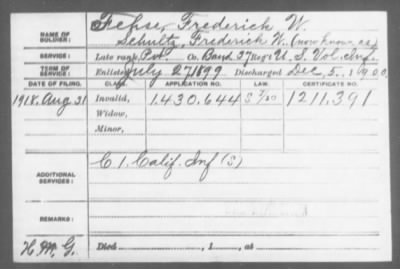 NAME OF SOLDIER: Fehse, Frederick W.
Schultz, Frederick W. (now known as)
SERVICE: Late rank, Pvt. Co. Band, 37 Reg't U. S. Vol. Inf.
TERM OF SERVICE: Enlisted July 27, 1899 Discharged Dec. 5, 1900.
DATE OF FILING. CLASS. APPLICATION NO. LAW. CERTIFICATE NO.
1918. Aug 31 Invalid, 1.430.644 1211.391
Widow,
Minor,
ADDITIONAL SERVICES: C 1. Calif. Inf (S)
REMARKS:
H. M. G. Died , 1 , at